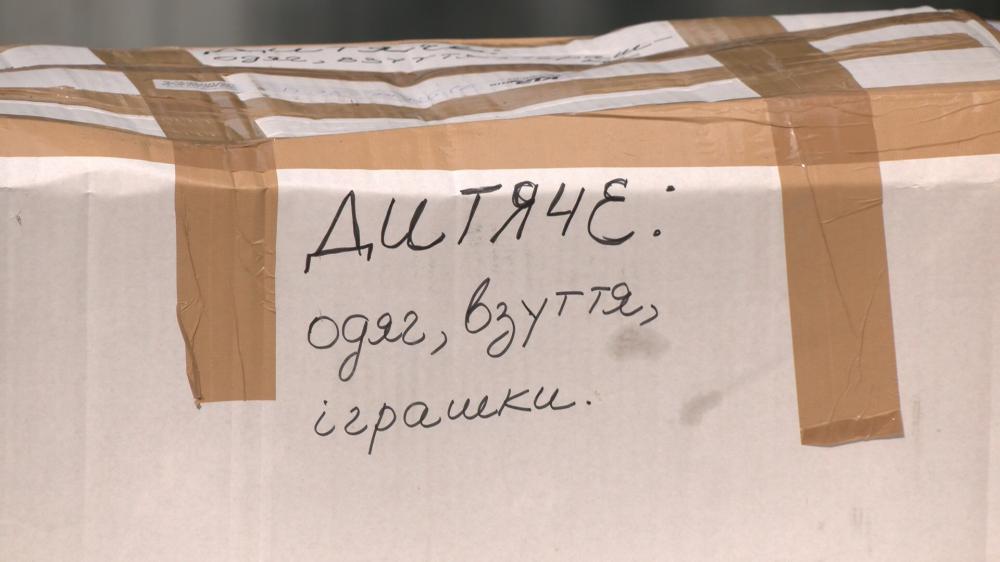 ДИТЯЧЕ:
одяг, взуття,
ДИТЯЧЕ:
одяг, взуття,
іграшки.